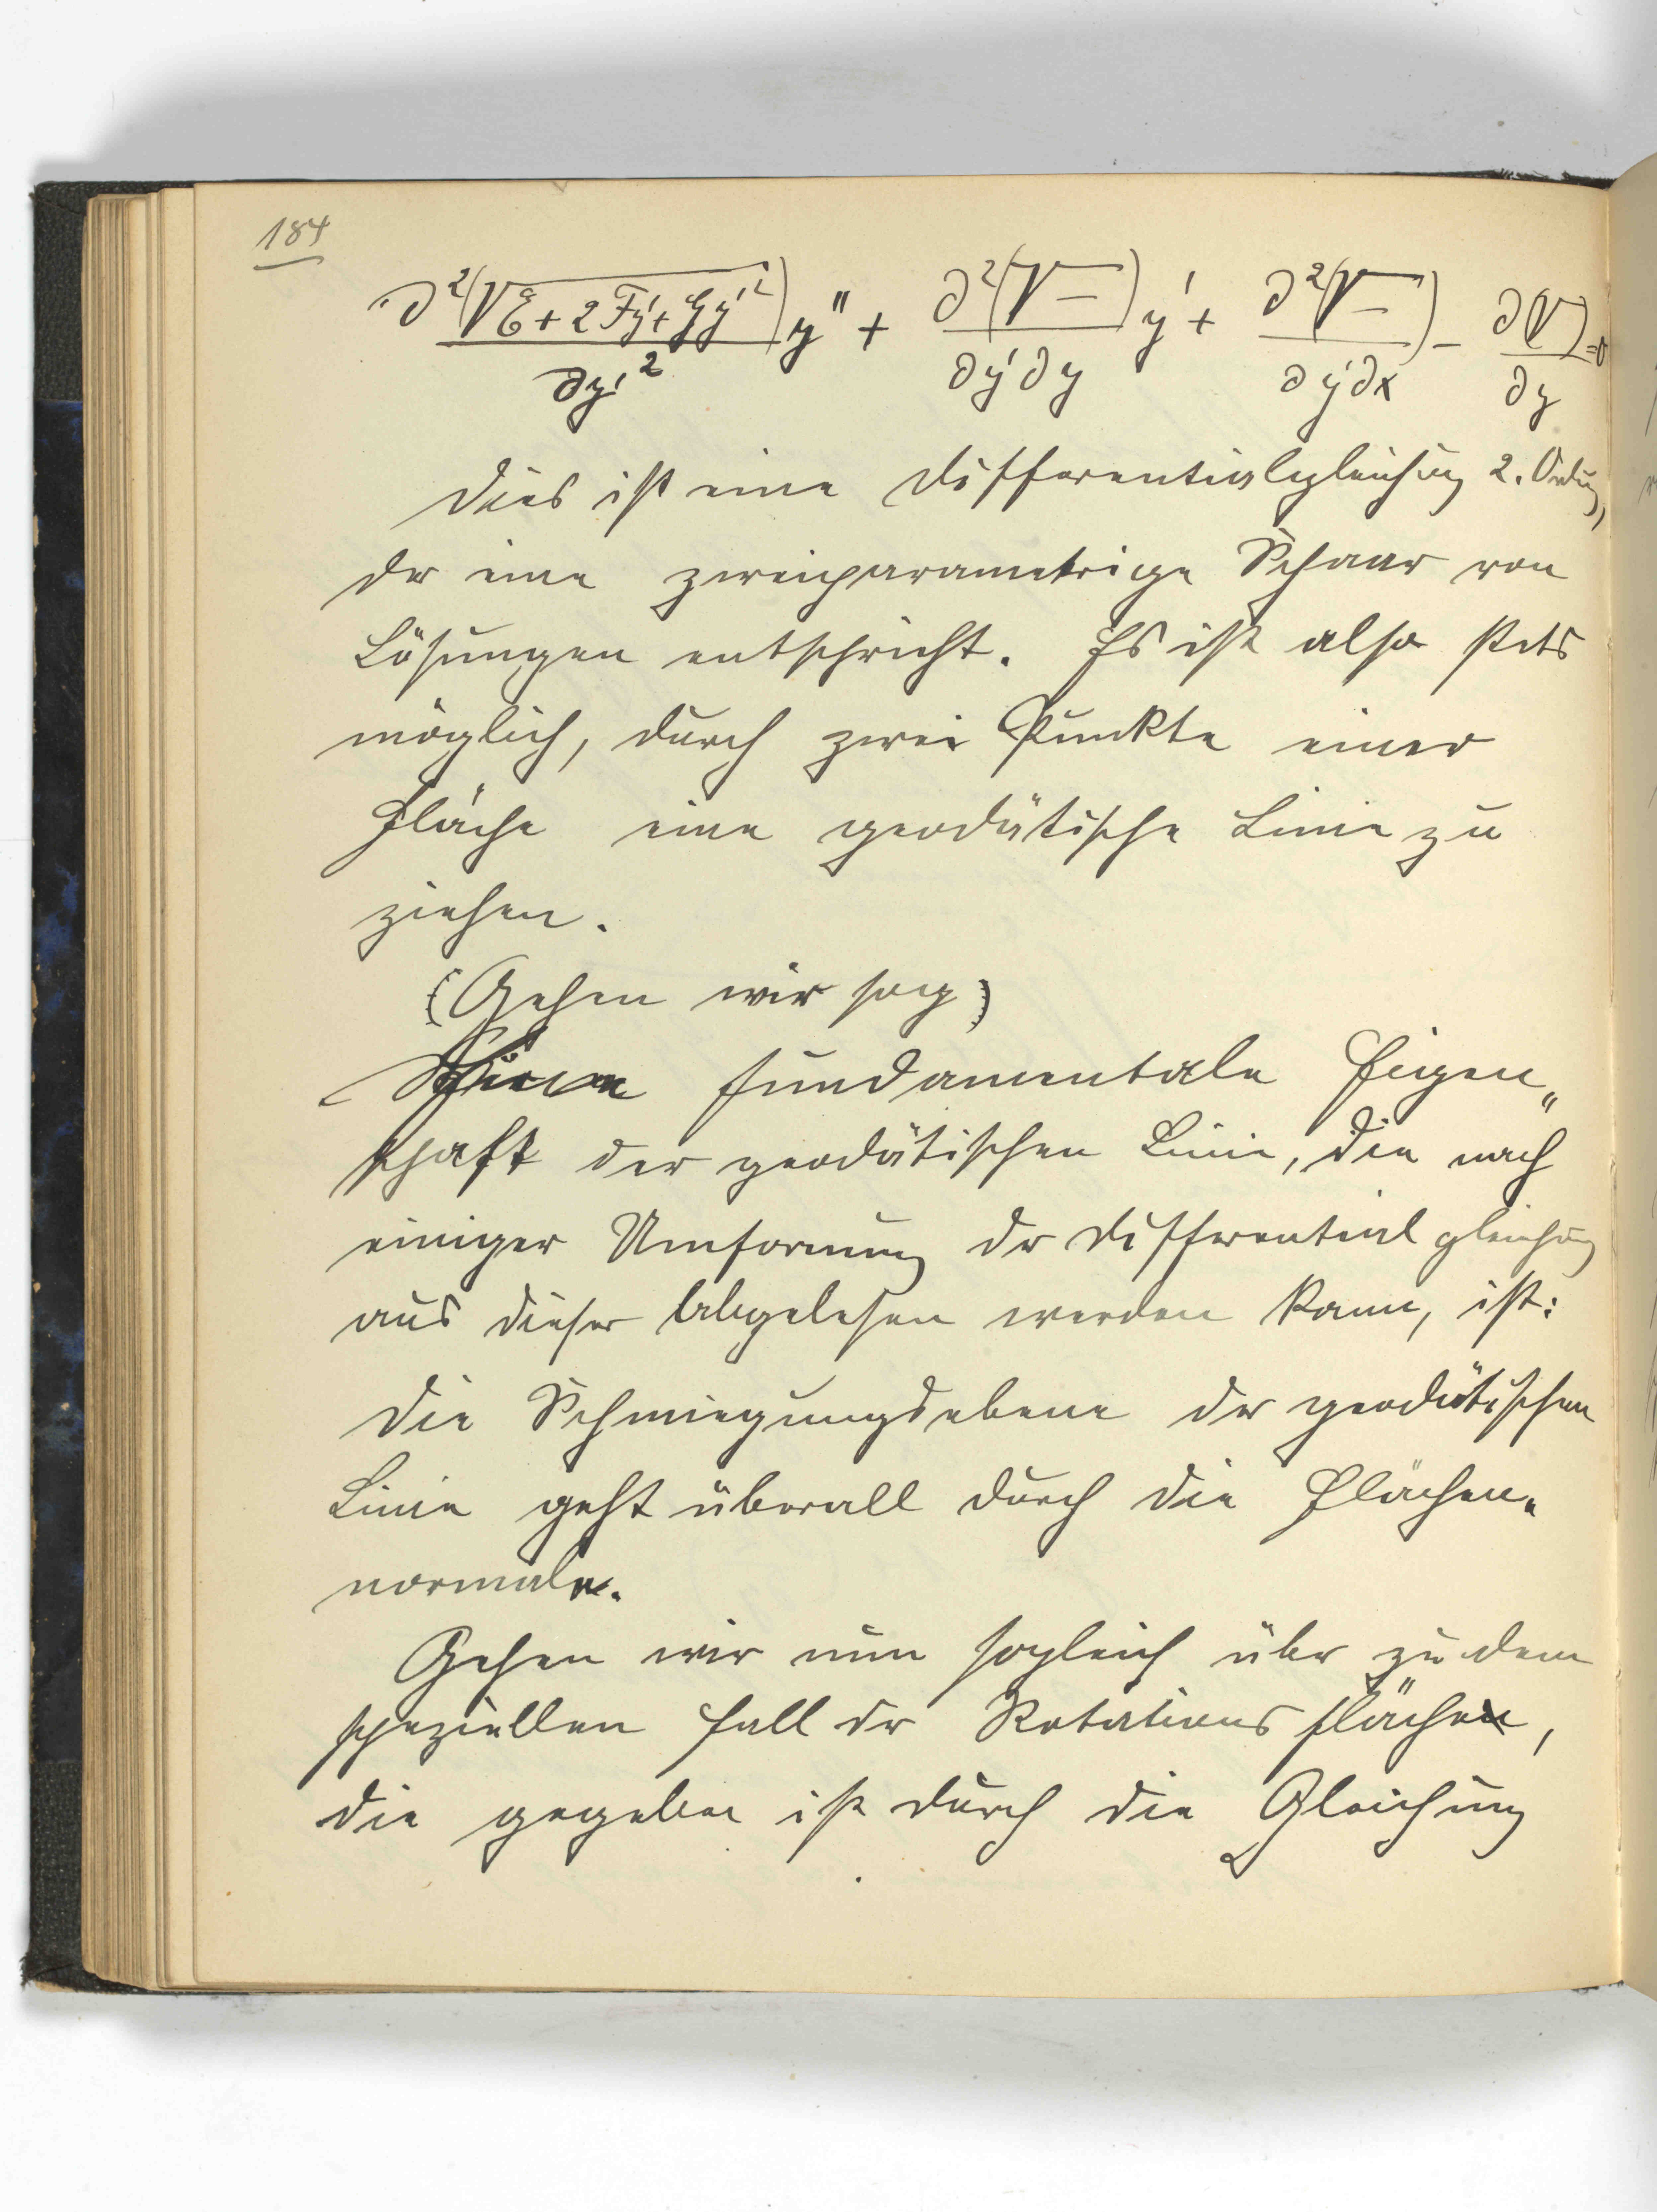 184
∂²(√E+2Fy'+Gy'²)/∂y'² y" + ∂²(√—)/∂y'∂y y' + ∂²(√—)/∂y'∂x − ∂(√)/∂y =0
Dies ist eine Differentialgleichung 2. Ordng,
der eine zweiparametrige Schaar von
Lösungen entspricht. Es ist also stets
möglich, durch zwei Punkte einer
Fläche eine geodätische Linie zu
ziehen.
(Gehen wir sog)
Eine fundamentale Eigen„
schaft der geodätischen Linie, die nach
einiger Umformung der Differentialgleichung
aus dieser abgelesen werden kann, ist:
Die Schmiegungsebene der geodätischen
Linie geht überall durch die Flächen„
normale.
Gehen wir nun sogleich über zu dem
speziellen Fall der Rotationsfläche,
die gegeben ist durch die Gleichung